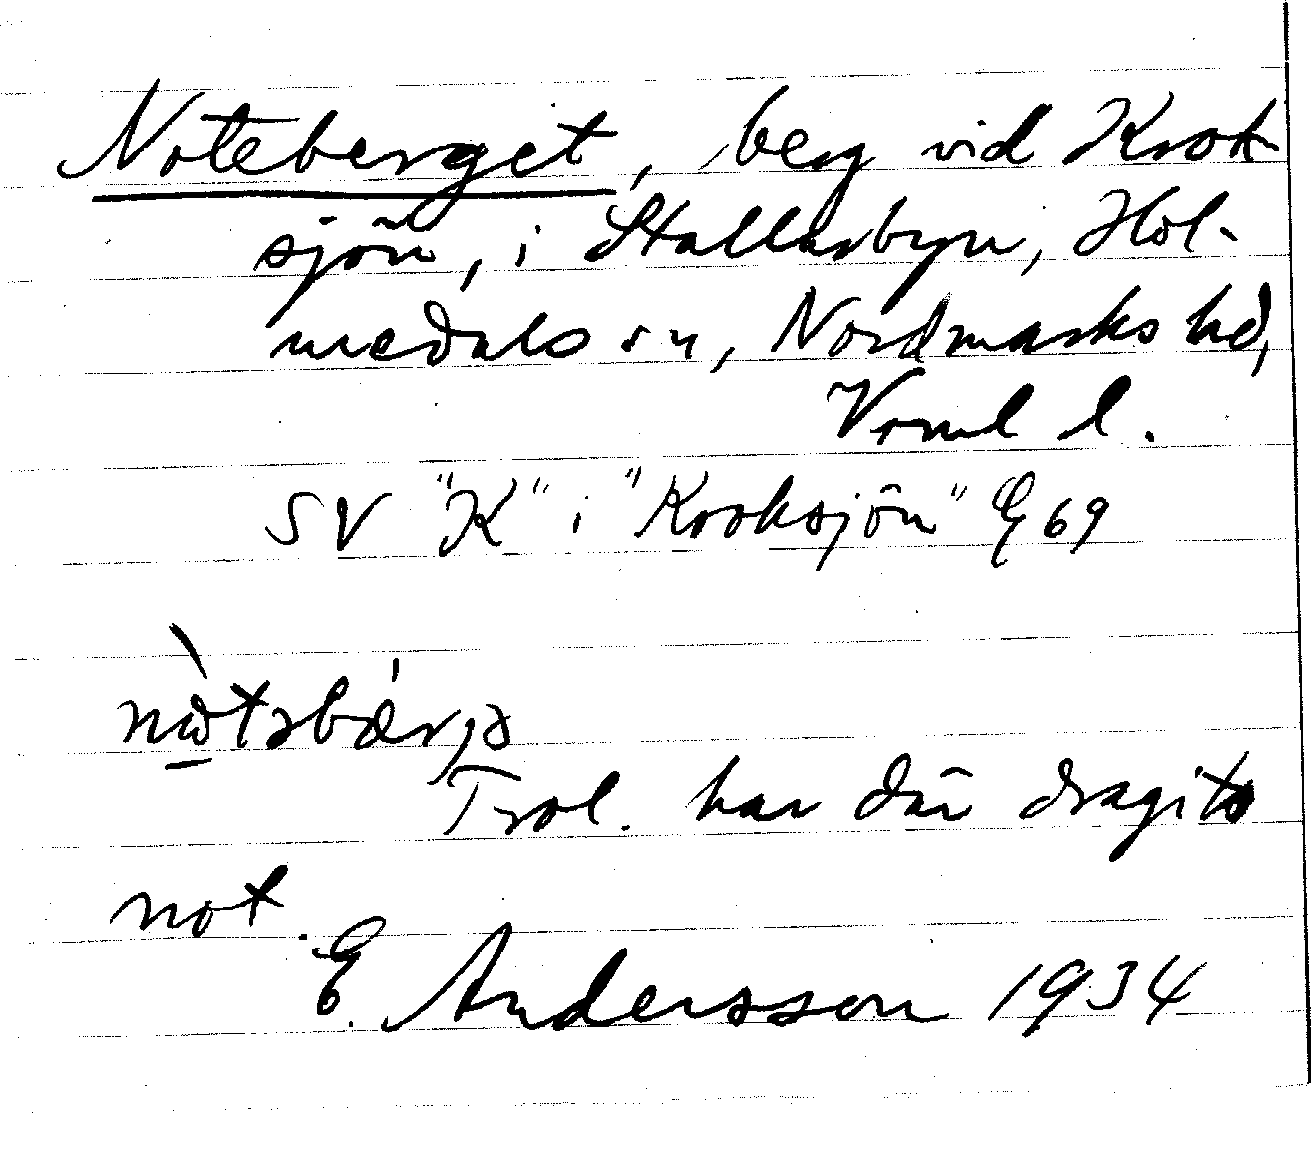 Noteberget, berg vid Krok-
sjön, i Stallarbyn, Hol-
medals sn, Nordmarks hd,
Vrml l.
SV "K" i "Kroksjön" E 69
Trol. har där dragits
not.
E. Andersson 1934